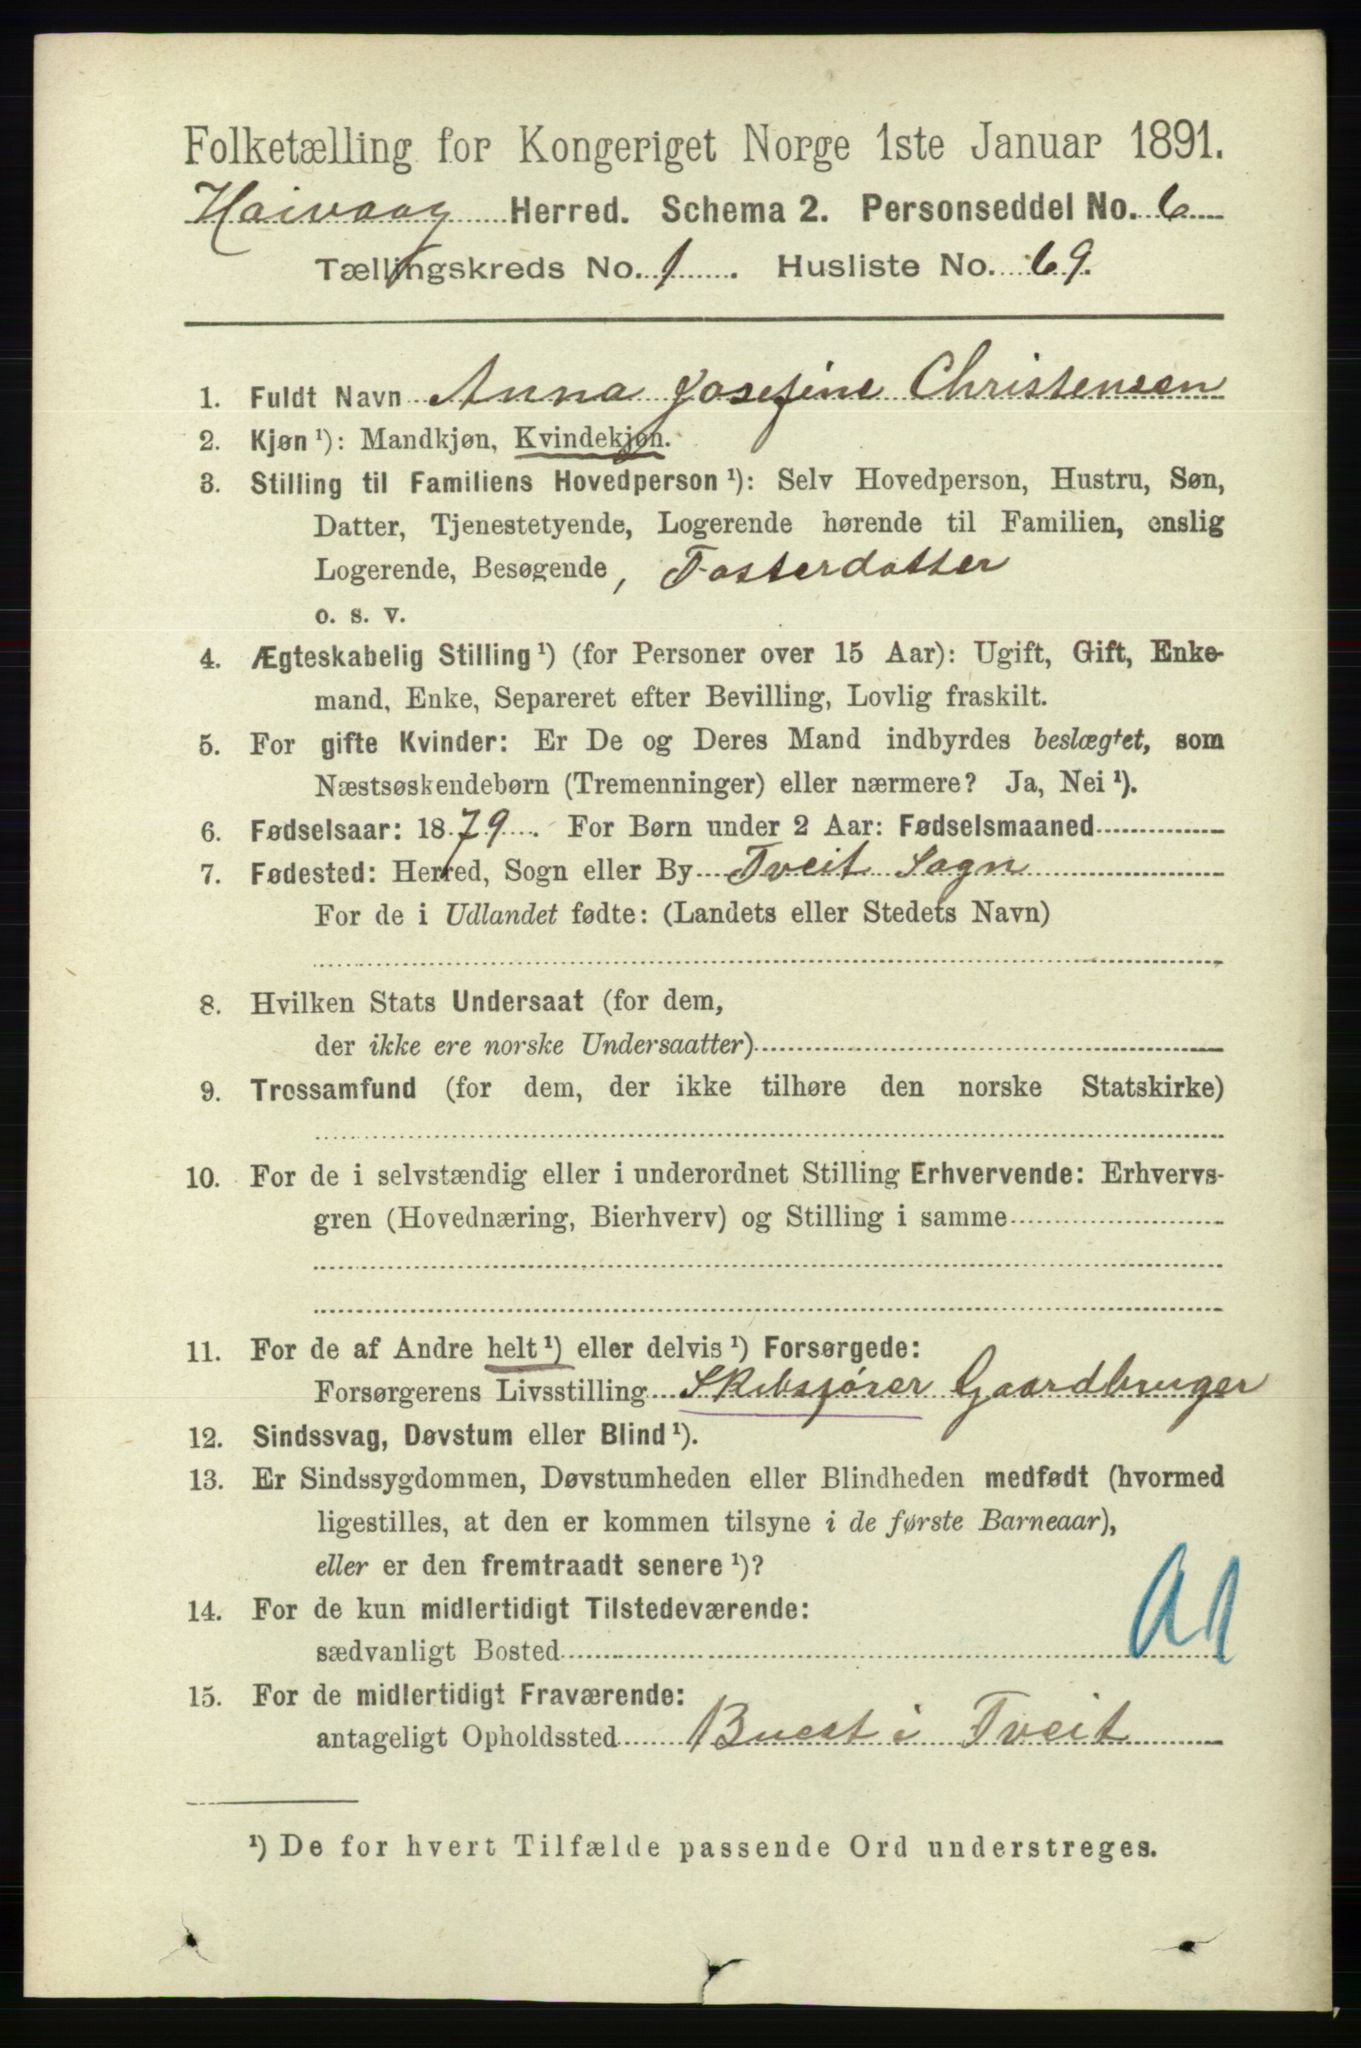 Folketælling for Kongeriget Norge 1ste Januar 1891.
Høivaag Herred. Schema 2. Personseddel No. 6
Tællingskreds No. 1. Husliste No. 69.
1. Fuldt Navn Anna Josefine Christensen
2. Kjøn ¹): Mandkjøn, Kvindekjøn.
3. Stilling til Familiens Hovedperson ¹): Selv Hovedperson, Hustru, Søn,
Datter, Tjenestetyende, Logerende hørende til Familien, enslig
Logerende, Besøgende, Fosterdatter
o. s. v.
4. Ægteskabelig Stilling ¹) (for Personer over 15 Aar): Ugift, Gift, Enke-
mand, Enke, Separeret efter Bevilling, Lovlig fraskilt.
5. For gifte Kvinder: Er De og Deres Mand indbyrdes beslægtet, som
Næstsøskendebørn (Tremenninger) eller nærmere? Ja, Nei ¹).
6. Fødselsaar: 1879. For Børn under 2 Aar: Fødselsmaaned
7. Fødested: Herred, Sogn eller By Tveit Sogn
For de i Udlandet fødte: (Landets eller Stedets Navn)
8. Hvilken Stats Undersaat (for dem,
der ikke ere norske Undersaatter)
9. Trossamfund (for dem, der ikke tilhøre den norske Statskirke)
10. For de i selvstændig eller i underordnet Stilling Erhvervende: Erhvervs-
gren (Hovednæring, Bierhverv) og Stilling i samme
11. For de af Andre helt ¹) eller delvis ¹) Forsørgede:
Forsørgerens Livsstilling Skibsfører Gaardbruger
12. Sindssvag, Døvstum eller Blind ¹).
13. Er Sindssygdommen, Døvstumheden eller Blindheden medfødt (hvormed
ligestilles, at den er kommen tilsyne i de første Barneaar),
eller er den fremtraadt senere ¹)?
14. For de kun midlertidigt Tilstedeværende:
sædvanligt Bosted
15. For de midlertidigt Fraværende:
antageligt Opholdssted Buest i Tveit
¹) De for hvert Tilfælde passende Ord understreges.